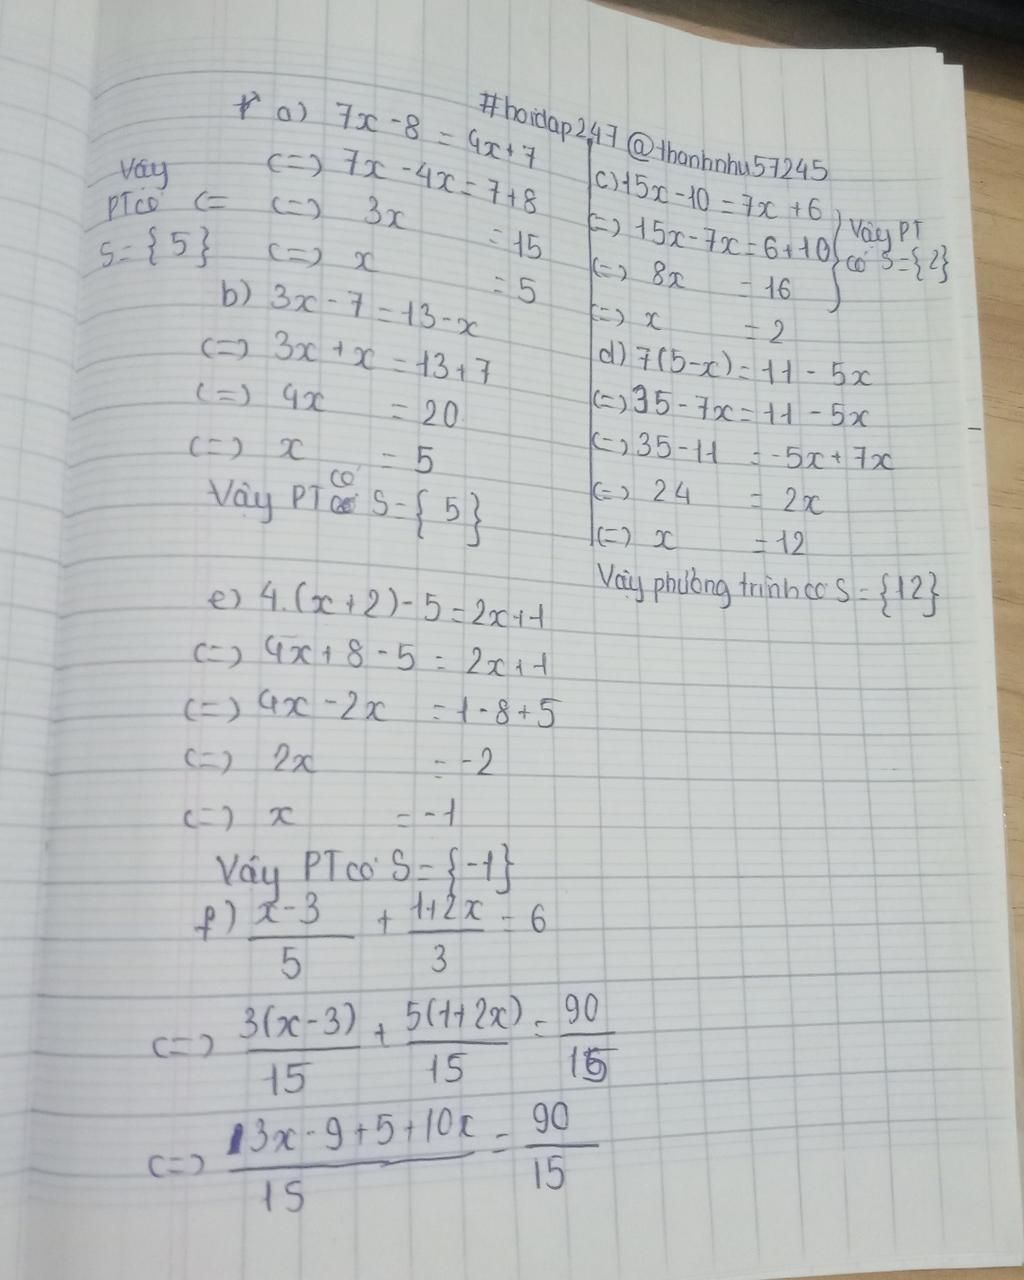 #hoidap247 @thanhnhu57245
a) 7x - 8 = 4x + 7
(=) 7x - 4x = 7 + 8
(=) 3x = 15
(=) x = 5
Vậy
PT có (=
S = {5}
b) 3x - 7 = 13 - x
(=) 3x + x = 13 + 7
(=) 4x = 20
(=) x = 5
Vậy PT có S = {5}
c) 15x - 10 = 7x + 6
(=) 15x - 7x = 6 + 10
(=) 8x = 16
(=) x = 2
Vậy PT
có S = {2}
d) 7(5 - x) = 11 - 5x
(=) 35 - 7x = 11 - 5x
(=) 35 - 11 = -5x + 7x
(=) 24 = 2x
(=) x = 12
Vậy phương trình có S = {12}
e) 4.(x + 2) - 5 = 2x + 1
(=) 4x + 8 - 5 = 2x + 1
(=) 4x - 2x = 1 - 8 + 5
(=) 2x = -2
(=) x = -1
Vậy PT có S = {-1}
f) x - 3 / 5 + 1 + 2x / 3 = 6
(=) 3(x - 3) / 15 + 5(1 + 2x) / 15 = 90 / 15
(=) 3x - 9 + 5 + 10x / 15 = 90 / 15